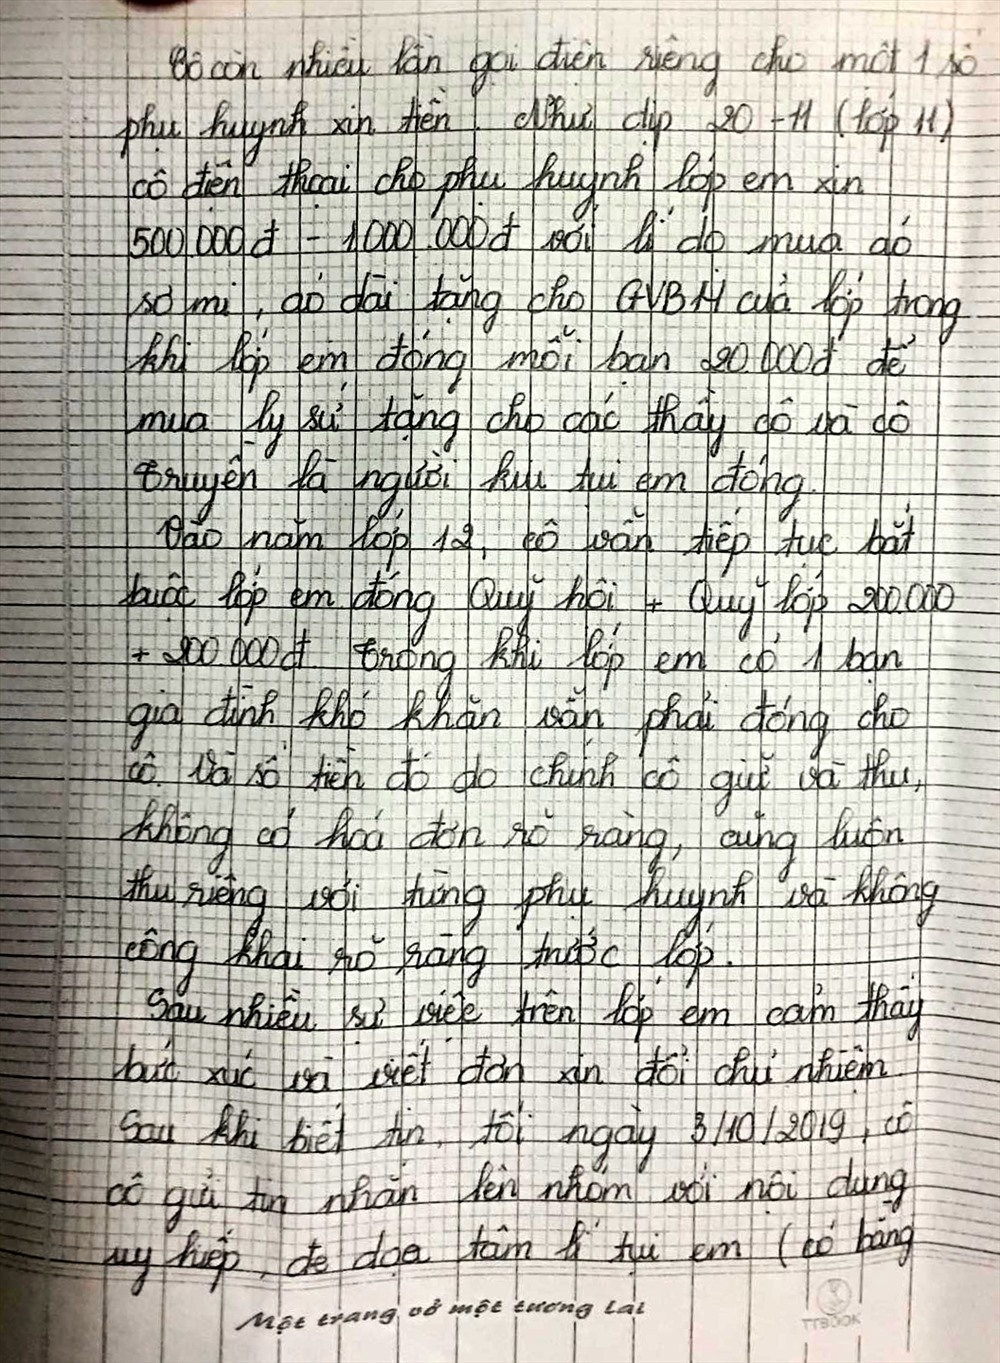 Cô còn nhiều lần gọi điện riêng cho một 1 số
phụ huynh xin tiền. Như dịp 20-11 (lớp 11)
cô điện thoại cho phụ huynh lớp em xin
500.000đ - 1000.000đ với lí do mua áo
sơ mi, áo dài tặng cho GVBM của lớp trong
khi lớp em đóng mỗi bạn 20.000đ để
mua ly sứ tặng cho các thầy cô và cô
Truyên là người kiu tụi em đóng.
Vào năm lớp 12, cô vẫn tiếp tục bắt
buộc lớp em đóng Quỹ hội + Quỹ lớp 200.000
+ 200.000đ. Trong khi lớp em có 1 bạn
gia đình khó khăn vẫn phải đóng cho
cô. Và số tiền đó do chính cô giữ và thu,
không có hoá đơn rõ ràng, cũng luôn
thu riêng với từng phụ huynh và không
công khai rõ ràng trước lớp.
Sau nhiều sự việc trên lớp em cảm thấy
bức xúc và viết đơn xin đổi chủ nhiệm.
Sau khi biết tin, tối ngày 3/10/2019, cô
cô gửi tin nhắn lên nhóm với nội dung
uy hiếp, đe dọa tâm lí tụi em (có bằng
Một trang vở một tương lai
TTBOOK